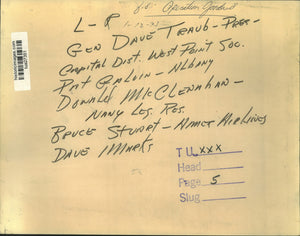 L-R
Gen Dave Traub - Pres -
Capital Dist. West Point Soc.
Pat Galvin - Albany
Donald McClenahan -
Navy Leg. Res.
Bruce Stuart - Airlines
Dave Marks
TU XXX
Head
Page 5
Slug